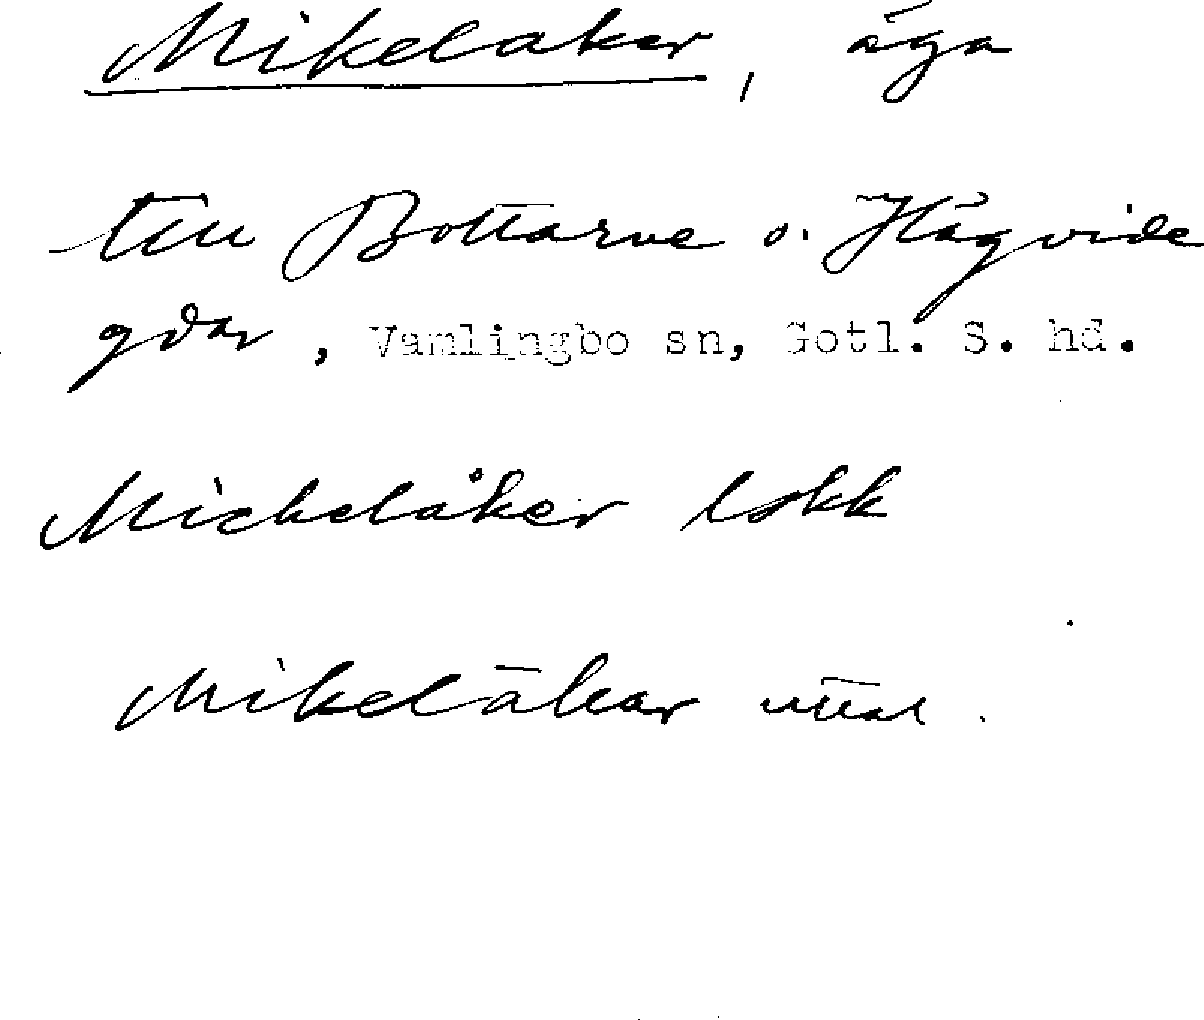 Mikelaker, äga
till Bottarve o. Hägvide
gdar, Vamlingbo sn, Gotl. S. hd.
Mickelåker lokk
Mikelākar uttal.